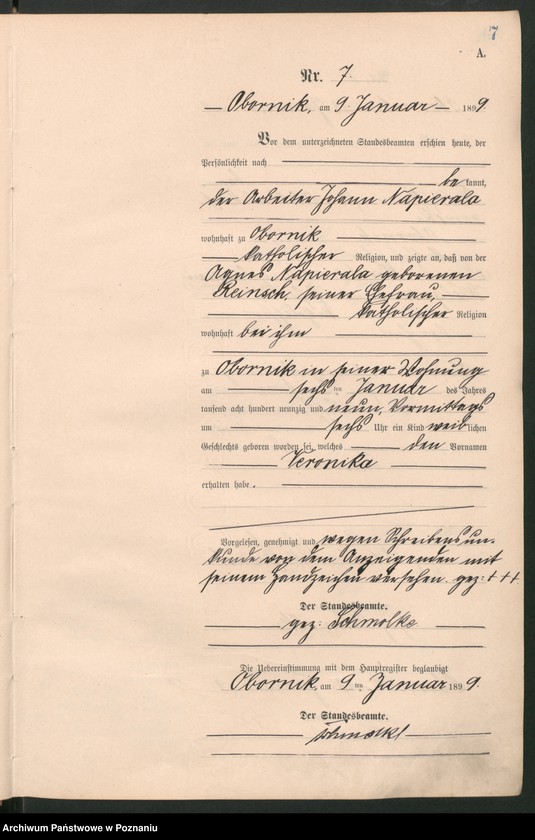 7
A.
Nr. 7.
Obornik, am 9. Januar 1899.
Vor dem unterzeichneten Standesbeamten erschien heute, der
Persönlichkeit nach
bekannt,
der Arbeiter Johann Napierala
wohnhaft zu Obornik
katholischer Religion, und zeigte an, daß von der
Agnes Napierala geborenen
Reinsch, seiner Ehefrau,
katholischer Religion
wohnhaft bei ihm
zu Obornik in seiner Wohnung
am sechsten Januar des Jahres
tausend acht hundert neunzig und neun, Vormittags
um sechs Uhr ein Kind weiblichen
Geschlechts geboren worden sei, welches den Vornamen
Veronika
erhalten habe.
Vorgelesen, genehmigt und wegen Schreibensun-
kunde von dem Anzeigenden mit
seinem Handzeichen versehen. gez: +++
Der Standesbeamte.
gez: Schmolke
Die Uebereinstimmung mit dem Hauptregister beglaubigt
Obornik, am 9ten Januar 1899.
Der Standesbeamte.
Schmolke
Archiwum Państwowe w Poznaniu